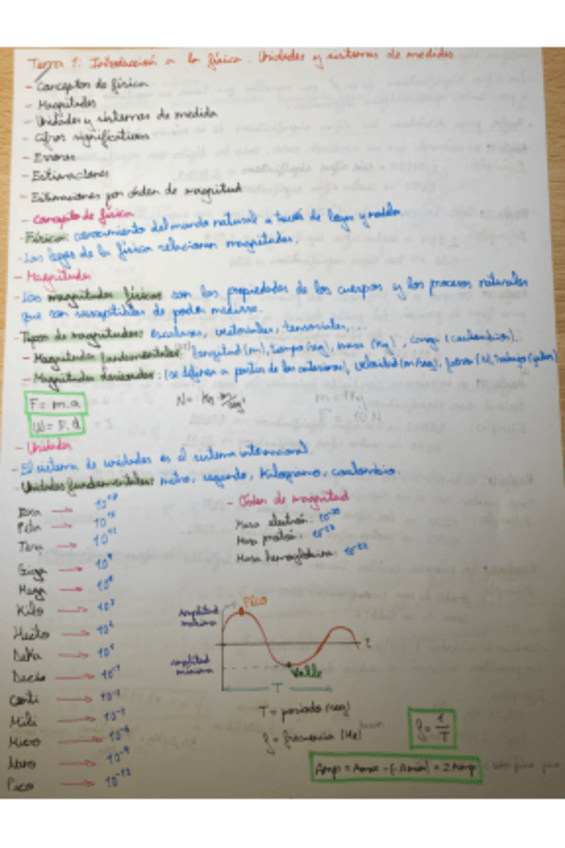 Tema 1: Introducción a la física. Unidades y sistemas de medidas
- Conceptos de física
- Magnitudes
- Unidades y sistemas de medida
- Cifras significativas
- Errores
- Estimaciones
- Estimaciones por órden de magnitud
- Concepto de física
- Física: conocimiento del mundo natural a través de leyes y modelos.
- Las leyes de la física relacionan magnitudes.
- Magnitudes
- Las magnitudes físicas son las propiedades de los cuerpos y los procesos naturales
que son susceptibles de poder medirse.
- Tipos de magnitudes: escalares, vectoriales, tensoriales,...
- Magnitudes fundamentales: longitud (m), tiempo (seg), masa (Kg), carga (coulombios).
- Magnitudes derivadas: (se definen a partir de las anteriores), velocidad (m/seg), fuerza (N), trabajo (julios)
F = m.a
N = Kg m/seg²
m = 1Kg
F = 10 N
W = F.d
- Unidades
- El sistema de unidades es el sistema internacional.
- Unidades fundamentales: metro, segundo, Kilogramo, coulombio.
Exa → 10¹⁸
Peta → 10¹⁵
Tera → 10¹²
Giga → 10⁹
Mega → 10⁶
Kilo → 10³
Hecto → 10²
Deka → 10¹
Deci → 10⁻¹
Centi → 10⁻²
Mili → 10⁻³
Micro → 10⁻⁶
Nano → 10⁻⁹
Pico → 10⁻¹²
- Órden de magnitud
Masa electrón: 10⁻³⁰
Masa protón: 10⁻²⁷
Masa hemoglobina:
Amplitud máxima
Pico
t
Amplitud mínima
Valle
T
T = periodo (seg)
f = frecuencia (Hz)
f = 1/T
Amp = Amax - (-Amin) = 2 Amp